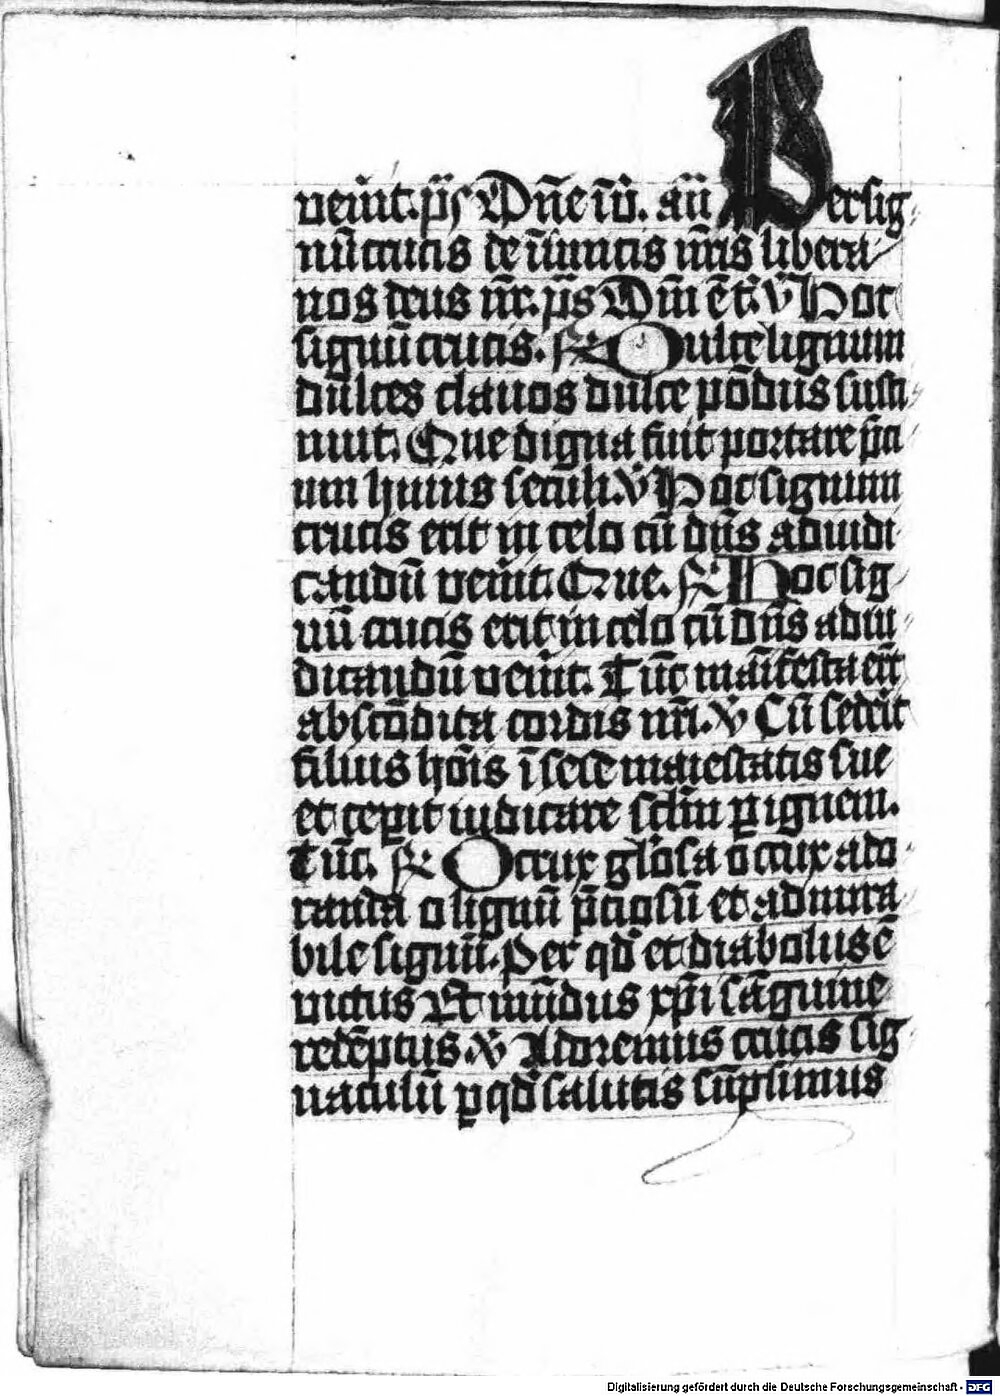 venit. ps̄ Dn̄e īu᷑. añ Per sig-
nū crucis de īimicis nr̄is libera
nos deus nr̄. ps̄ Dn̄i ē t̄. ℣ Hoc
signū crucis. ℟ Dulce lignum
dulces clauos dulce pōdus susti-
nuit. Que digna fuit portare p̄ci
um huius seculi. ℣ Hoc signum
crucis erit in celo cū dn̄s ad iudi
candū venit. Que. ℟ Hoc sig-
nū crucis erit in celo cū dn̄s ad iu-
dicandū venit. Tūc māifesta er̄t
abscōdita cordis nr̄i. ℣ Cū sederit
filius hoīs ī sede maiestatis sue
et ceperit iudicare sclm̄ ꝑ ignem.
Tūc. ℟ O crux gl̄osa o crux ado-
randa o lignū p̄ciosū et admira-
bile signū. Per qd̄ et diabolus ē
victus Et mūdus xp̄i sāguine
redēptus. ℣ Adoremus crucis sig-
naculū ꝑ qd̄ salutis sūpsimus
Digitalisierung gefördert durch die Deutsche Forschungsgemeinschaft - DFG